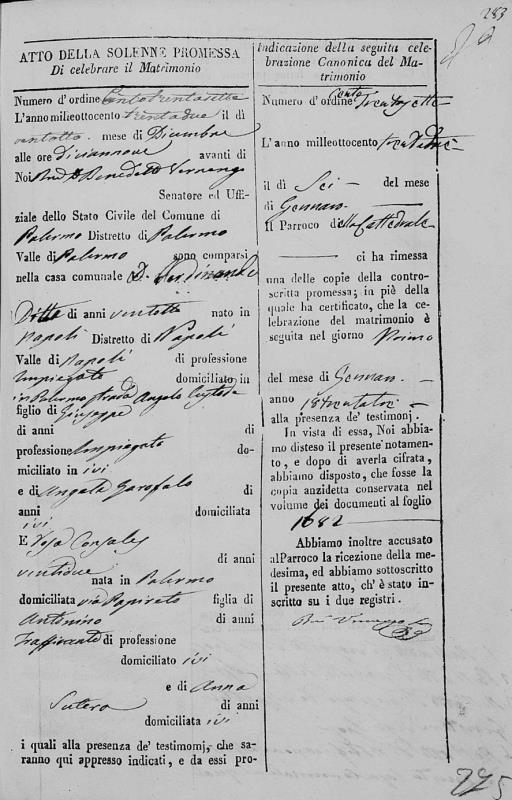 283
ATTO DELLA SOLENNE PROMESSA
Di celebrare il Matrimonio
Numero d'ordine Centotrentasette
L'anno milleottocento trentadue il dì
ventotto mese di Dicembre
alle ore diciannove avanti di
Noi D. Benedetto
Senatore ed Uffi-
ziale dello Stato Civile del Comune di
Palermo Distretto di Palermo
Valle di Palermo sono comparsi
nella casa comunale D. Ferdinando
Ditto di anni ventotto nato in
Napoli Distretto di Napoli
Valle di Napoli di professione
Impiegato domiciliato in
in Palermo strada Angelo Custode
figlio di Giuseppe
di anni di
professione Impiegato do-
miciliato in ivi
e di Angela Garofalo di
anni domiciliata
ivi
E Rosa Consales
di anni
ventidue
nata in Palermo
domiciliata via Papireto figlia di
Antonino di anni
Trafficante di professione
domiciliato ivi
e di Anna
Sutera di anni
domiciliata ivi
i quali alla presenza de' testimomj, che sa-
ranno qui appresso indicati, e da essi pro-
Indicazione della seguita cele-
brazione Canonica del Ma-
trimonio
Numero d'ordine Cento Trentasette
L'anno milleottocento
il dì Sei del mese
di Gennaro
Il Parroco della Cattedrale
ci ha rimessa
una delle copie della contro-
scritta promessa; in piè della
quale ha certificato, che la ce-
lebrazione del matrimonio è
seguita nel giorno Primo
del mese di Gennaro
anno
alla presenza de' testimonj.
In vista di essa, Noi abbia-
mo disteso il presente notamen-
to, e dopo di averla cifrata,
abbiamo disposto, che fosse la
copia anzidetta conservata nel
volume dei documenti al foglio
1682
Abbiamo inoltre accusato
al Parroco la ricezione della me-
desima, ed abbiamo sottoscritto
il presente atto, ch'è stato in-
scritto su i due registri.
225